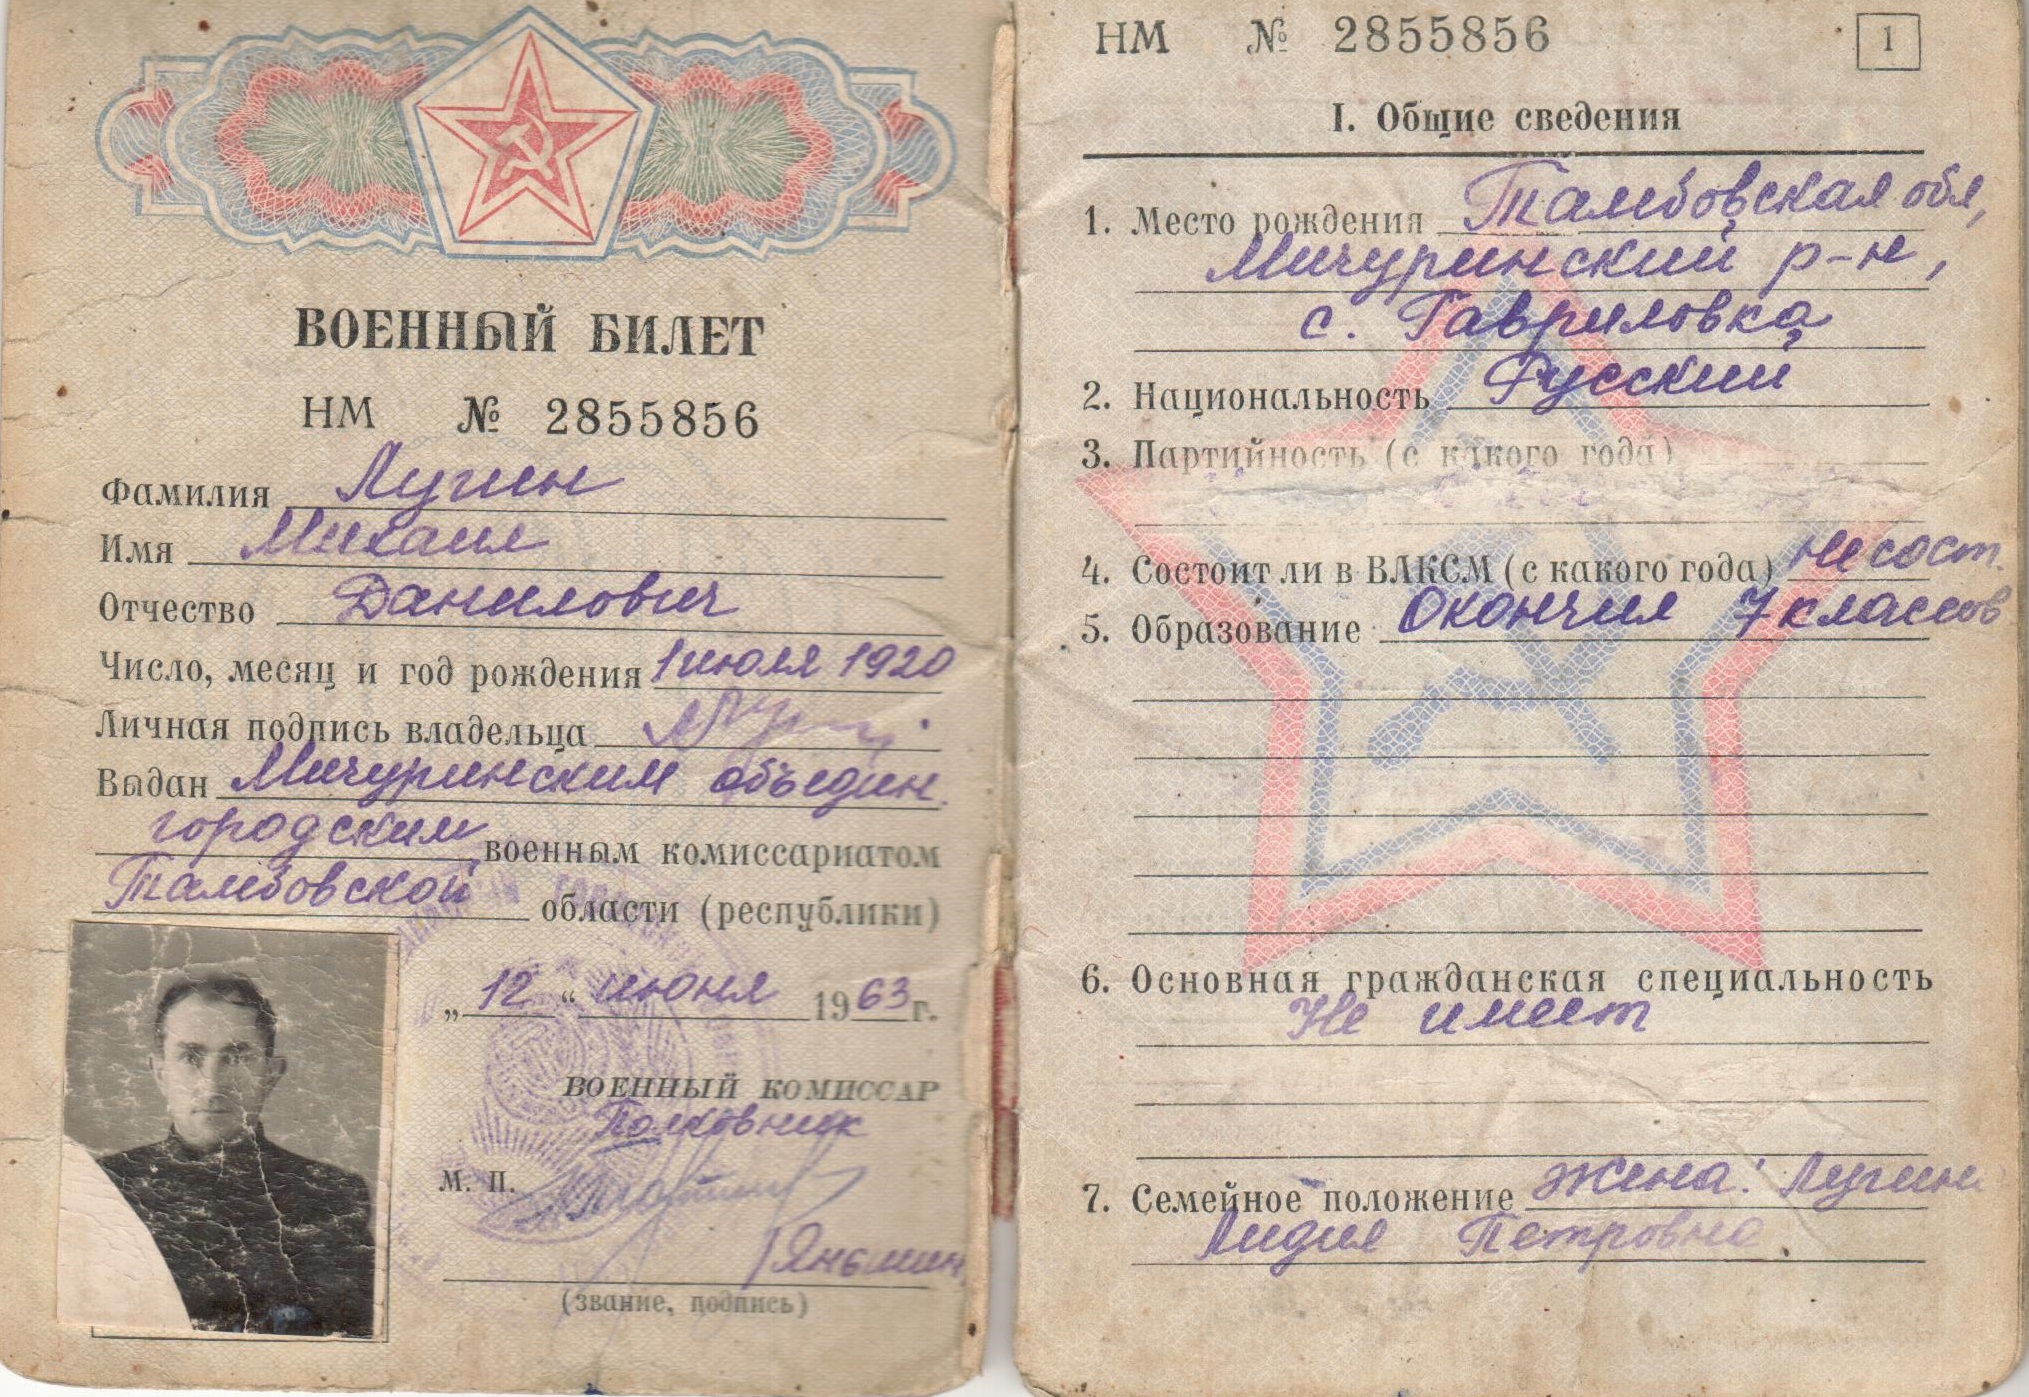 ВОЕННЫЙ БИЛЕТ
НМ № 2855856
Фамилия Лугин
Имя Михаил
Отчество Данилович
Число, месяц и год рождения 1 июля 1920
Личная подпись владельца
Выдан Мичуринским объедин.
городским военным комиссариатом
Тамбовской области (республики)
„12“ июня 1963 г.
ВОЕННЫЙ КОМИССАР
Полковник
М. П.
(звание, подпись)
НМ № 2855856
1
I. Общие сведения
1. Место рождения Тамбовская обл,
Мичуринский р-н,
с. Гавриловка
2. Национальность Русский
3. Партийность (с какого года)
4. Состоит ли в ВЛКСМ (с какого года) Не сост.
5. Образование Окончил 7 классов
6. Основная гражданская специальность
Не имеет
7. Семейное положение Жена: Лугина
Лидия Петровна